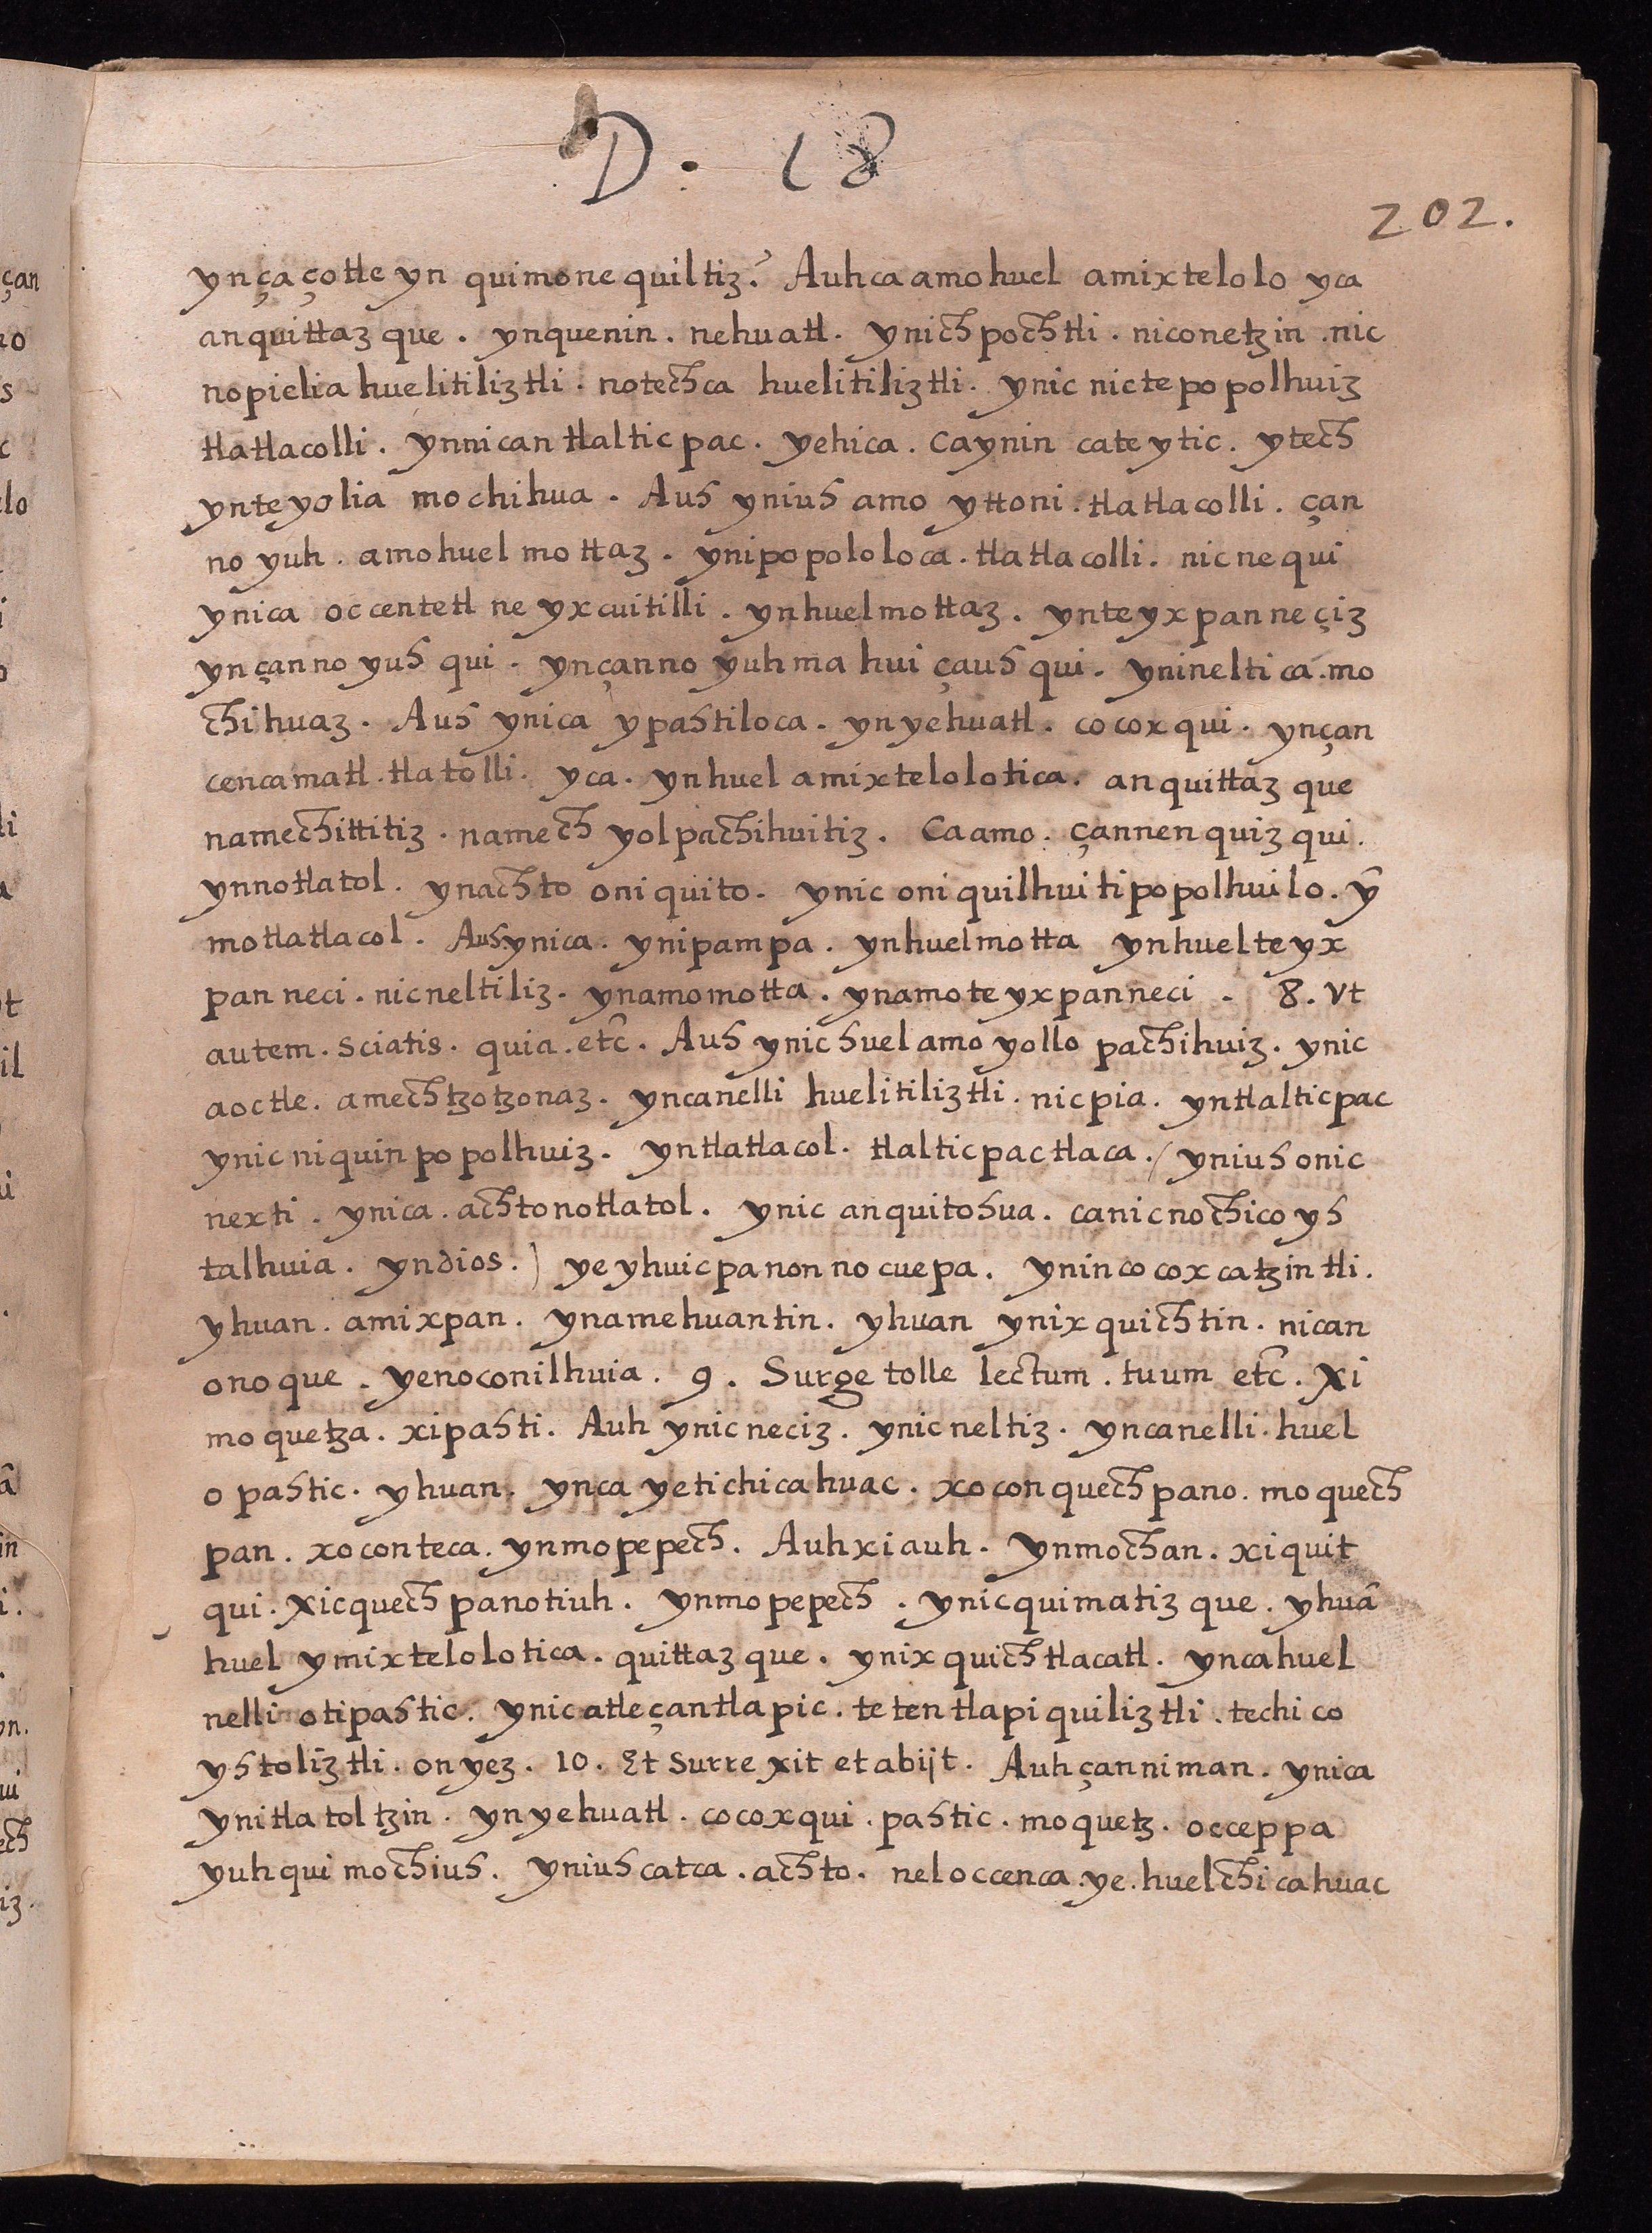 D. 18
202.
ynçaçotle yn quimonequiltiz? Auhca amohuel amixtelolo yca
anquittazque. ynquenin. nehuatl. ynichpochtli. niconetzin. nic
nopielia huelitiliztli. notechca huelitiliztli. ynic nictepopolhuiz
tlatlacolli. ynnican tlalticpac. yehica. Caynin cateytic. ytech
ynteyolia mochihua. Auh yniuh amo yttoni. tlatlacolli. çan
no yuh. amohuel mottaz. ynipopololoca. tlatlacolli. nicnequi
ynica occentetl neyxcuitilli. ynhuelmottaz. ynteyxpanneçiz
ynçanno yuh qui. ynçanno yuhmahuiçauhqui. ynineltica. mo
chihuaz. Auh ynica ypahtiloca. ynyehuatl. cocoxqui. ynçan
cencamatl. tlatolli. yca. ynhuel amixtelolotica. anquittazque
namechittitiz. namech yolpachihuitiz. Caamo. çannenquizqui.
ynnotlatol. ynachto oniquito. ynic oniquilhui tipopolhuilo. yˉ
motlatlacol. Auhynica. ynipampa. ynhuelmotta ynhuelteyx
panneci. nicneltiliz. ynamomotta. ynamoteyxpanneci. 8. Vt
autem. sciatis. quia. etc̄. Auh ynichuelamo yollo pachihuiz. ynic
aoctle. amechtzotzonaz. yncanelli huelitiliztli. nicpia. yntlalticpac
ynicniquinpopolhuiz. yntlatlacol. tlalticpactlaca. (yniuhonic
nexti. ynica. achtonotlatol. ynic anquitohua. canicnochicoyh
talhuia. yndios.) yeyhuicpanonnocuepa. ynincocoxcatzintli.
yhuan. amixpan. ynamehuantin. yhuan ynixquichtin. nican
onoque. yenoconilhuia. 9. Surge tolle lectum. tuum etc̄. Xi
moquetza. xipahti. Auh ynicneciz. ynicneltiz. yncanelli. huel
opahtic. yhuan. ynca yetichicahuac. xoconquechpano. moquech
pan. xoconteca. ynmopepech. Auhxiauh. ynmochan. xiquit
qui. Xicquechpanotiuh. ynmopepech. ynicquimatizque. yhuâ
huel ymixtelolotica. quittazque. ynixquichtlacatl. yncahuel
nelli otipahtic. ynicatleçantlapic. tetentlapiquiliztli. techico
yhtoliztli. onyez. 10. Et surrexit et abijt. Auhçanniman. ynica
ynitlatoltzin. ynyehuatl. cocoxqui. pahtic. moquetz. occeppa
yuhquimochiuh. yniuhcatca. achto. neloccenca. ye. huelchicahuac